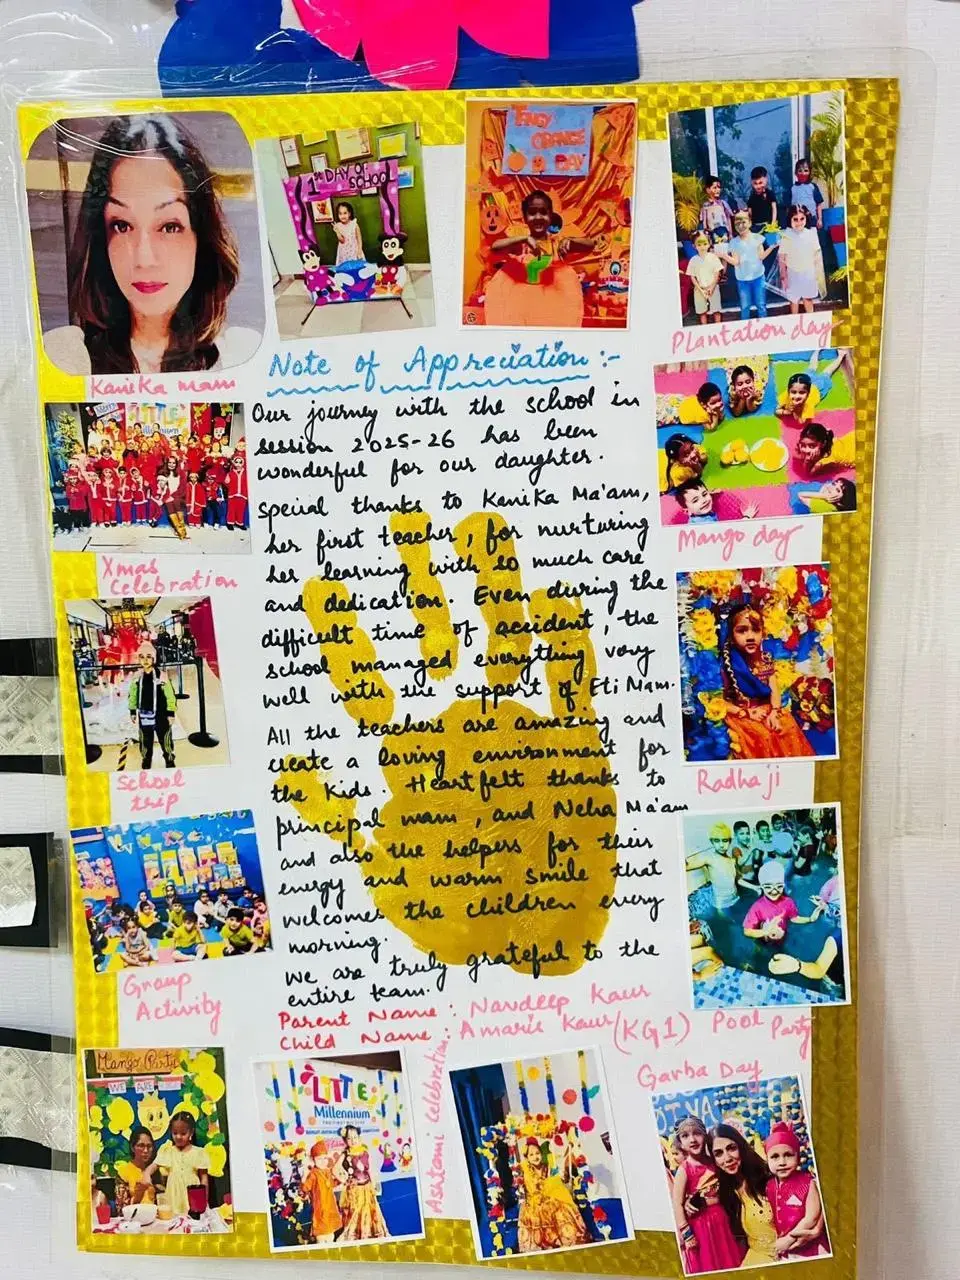 1st DAY OF SCHOOL
TANGY
ORANGE
DAY
Kanika mam
Plantation day
Note of Appreciation :-
Our journey with the school in
session 2025-26 has been
wonderful for our daughter.
Special thanks to Kanika Ma'am,
her first teacher, for nurturing
her learning with so much care
and dedication. Even during the
difficult time of accident, the
school managed everything very
well with the support of Eti Mam.
All the teachers are amazing and
create a loving environment for
the kids. Heartfelt thanks to
principal mam, and Neha Ma'am
and also the helpers for their
energy and warm smile that
welcomes the children every
morning.
we are truly grateful to the
entire team.
Parent Name : Navdeep Kaur
Child Name : Amarie Kaur (KG1)
LITTLE
Millennium
Xmas
Celebration
School
trip
Group
Activity
Mango day
Radha ji
Pool Party
Garba Day
Mango Party
WE ARE
LITTLE
Millennium
Ashtami Celebration